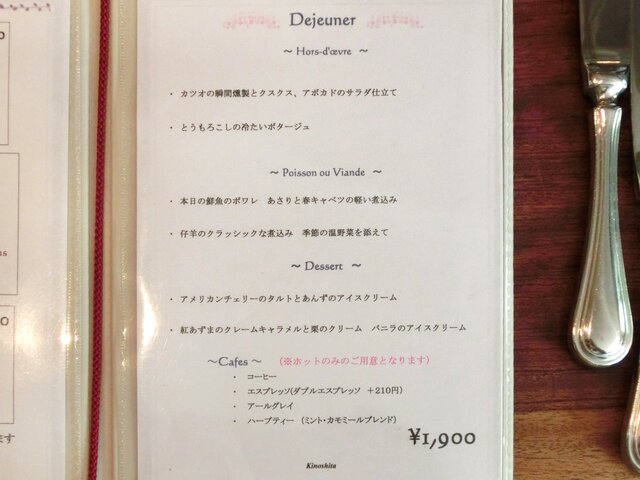 Dejeuner
～ Hors-d'œvre ～
・ カツオの瞬間燻製とクスクス、アボカドのサラダ仕立て
・ とうもろこしの冷たいポタージュ
～ Poisson ou Viande ～
・ 本日の鮮魚のポワレ　あさりと春キャベツの軽い煮込み
・ 仔羊のクラッシックな煮込み　季節の温野菜を添えて
～ Dessert ～
・ アメリカンチェリーのタルトとあんずのアイスクリーム
・ 紅あずまのクレームキャラメルと栗のクリーム　バニラのアイスクリーム
～Cafes～　（※ホットのみのご用意となります）
・ コーヒー
・ エスプレッソ(ダブルエスプレッソ　＋210円)
・ アールグレイ
・ ハーブティー　（ミント・カモミールブレンド）
¥1,900
Kinoshita
ます